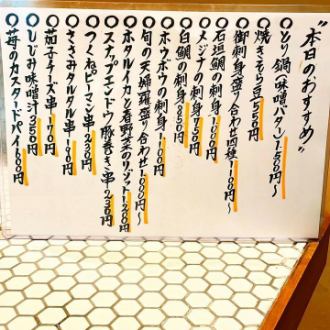 "本日のおすすめ"
○とり鍋(味噌バター)1,550円〜
○焼きそら豆550円
○御刺身盛り合わせ四種1,100円〜
○石垣鯛の刺身
○メジナの刺身750円
○白鯛の刺身850円
○ホウボウの刺身
○旬の天婦羅盛り合わせ1,000円〜
○ホタルイカと春野菜のリゾット1,200円
○スナップエンドウ豚巻き串230円
○つくねピーマン串230円
○ささみタルタル串
○茄子チーズ串170円
○しじみ味噌汁350円
○苺のカスタードパイ600円